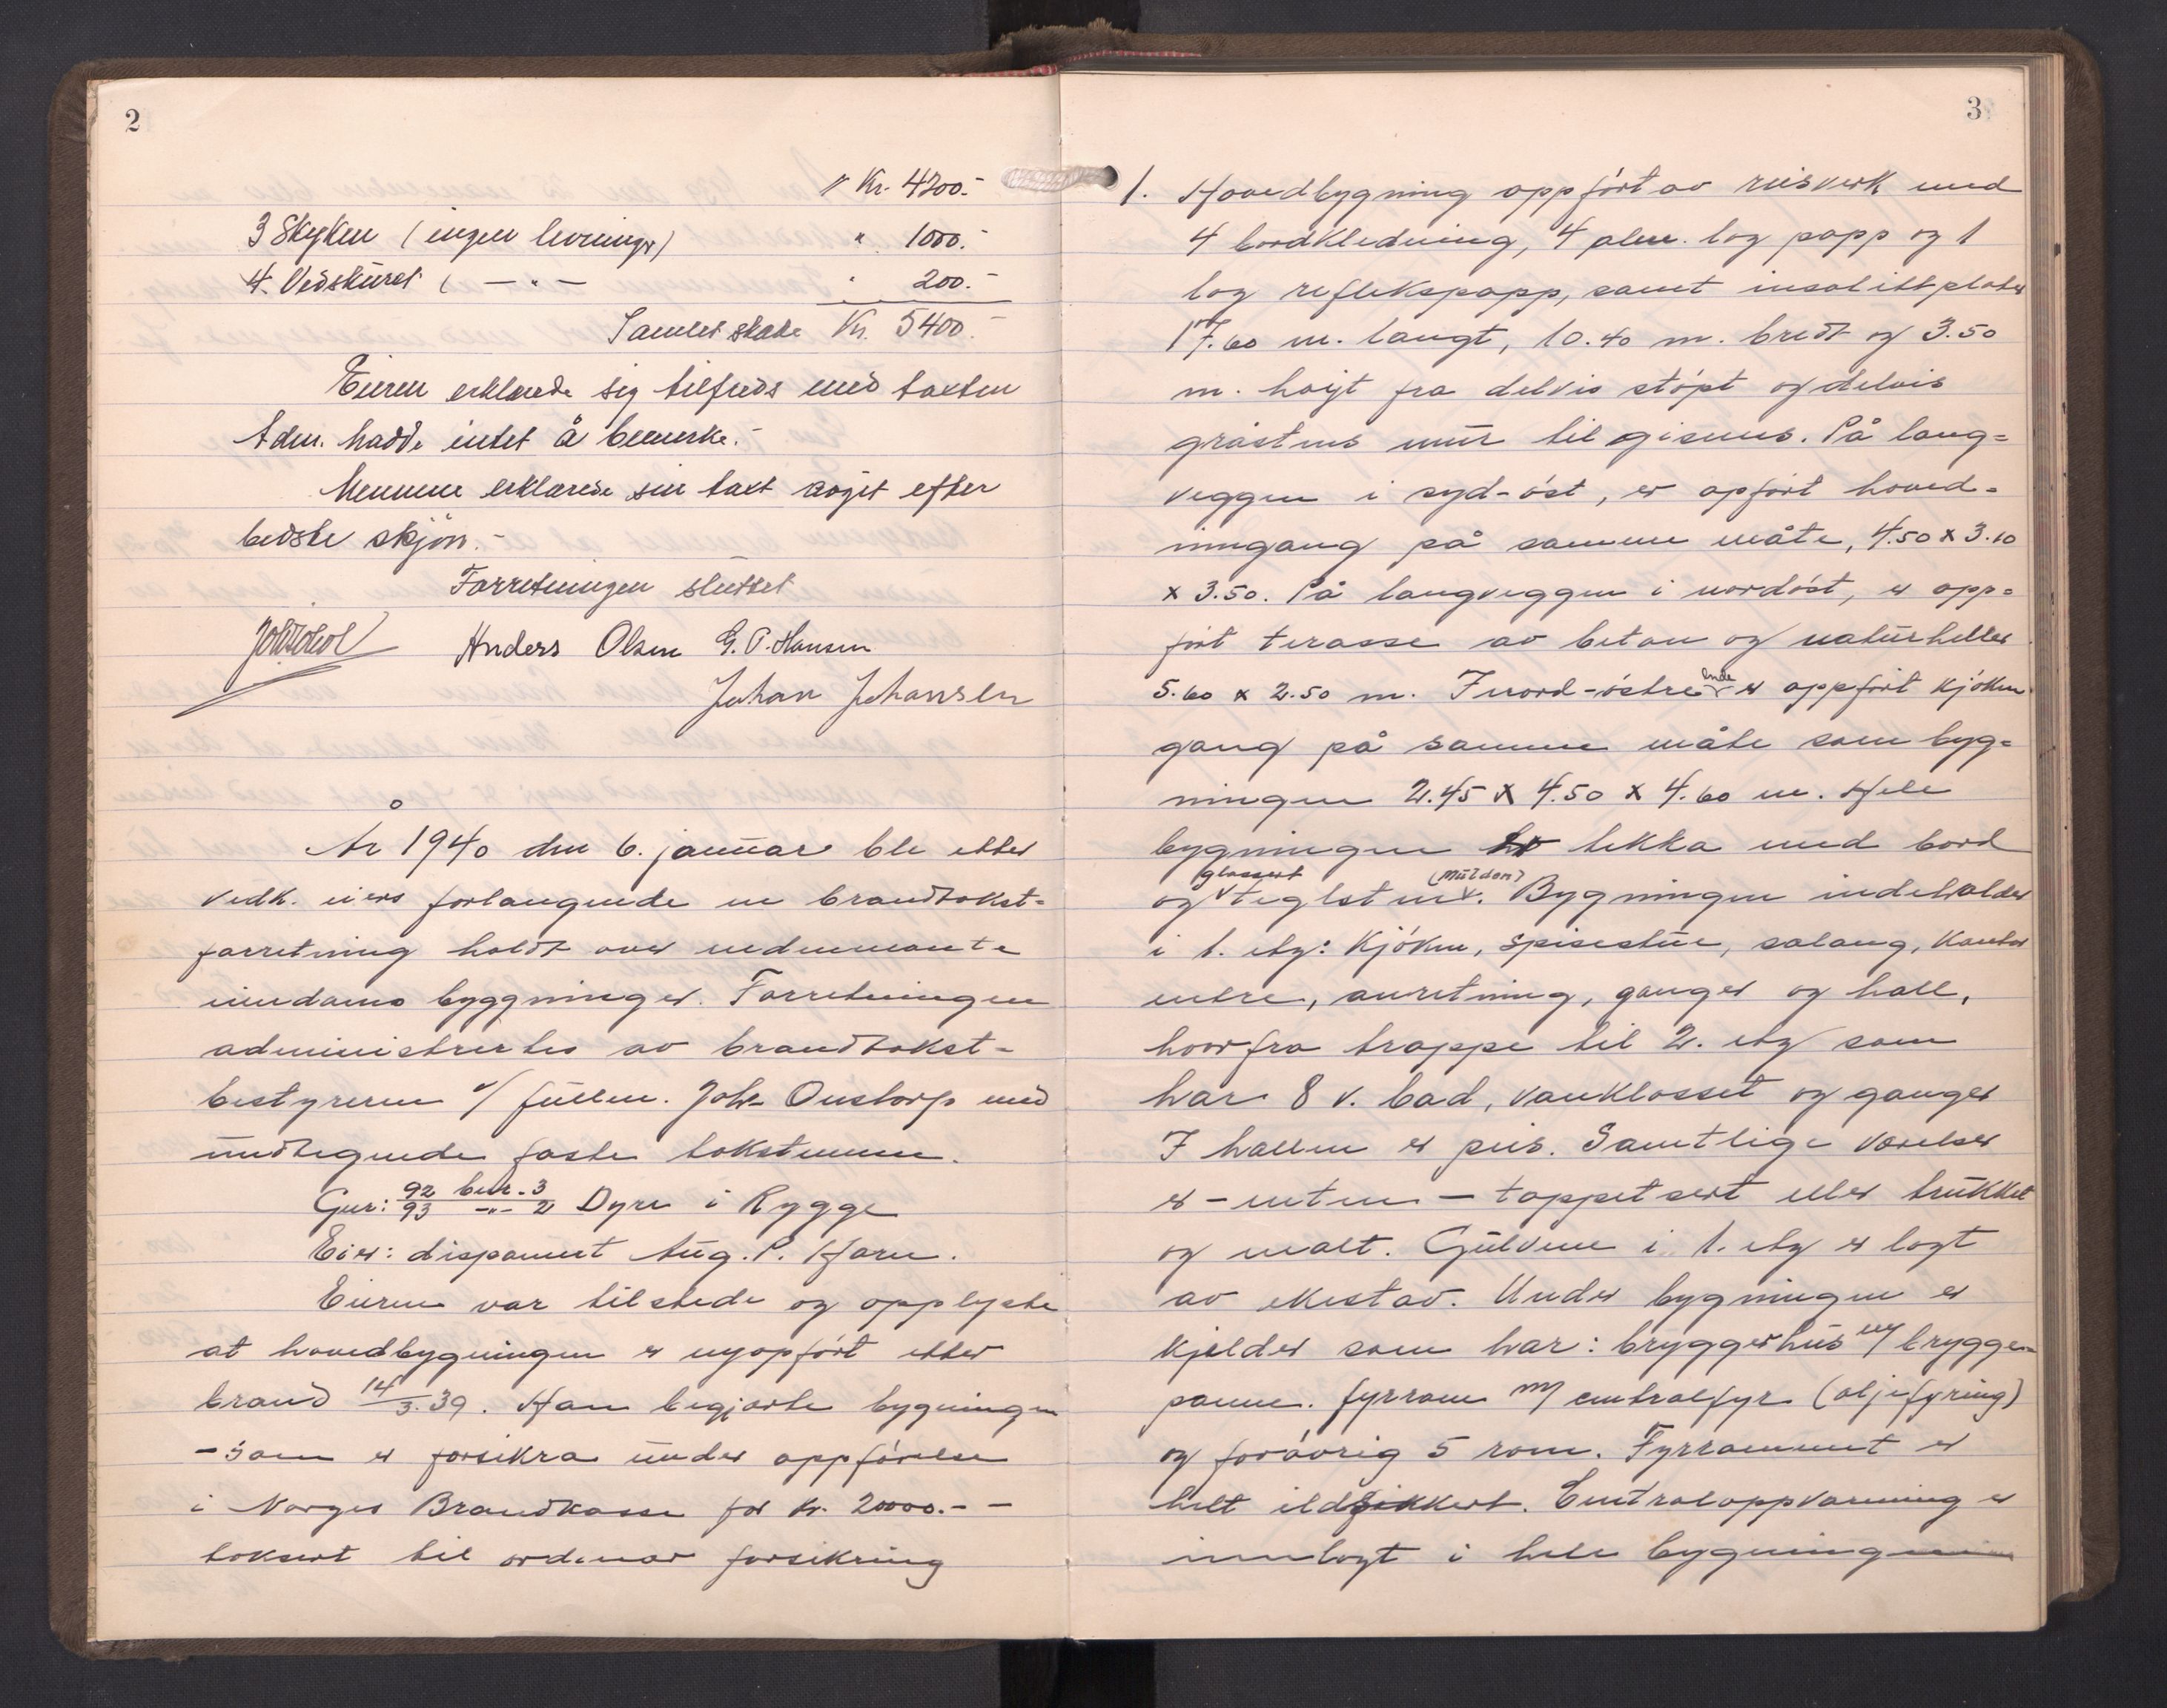 2
" Kr. 4200.-
3 Skyken (ingen levninger) " 1000.-
4. Vedskuret ( — " — " 200.-
Samlet skade Kr. 5400.-
Eieren erklærede sig tilfreds med taxten
Adm. hadde intet å bemerke.-
Mennene erklærede sin taxt avgit efter
bedste skjøn.-
Forretningen sluttet
Anders Olsen G. P. Hansen
Johan Johansen
År 1940 den 6. januar ble etter
vedk. eiers forlangende en brandtakst-
forretning holdt over nedennevnte
eiendoms byggninger. Forretningen
administrertes av brandtakst-
bestyreren v/ fullm. Joh. Onstorp med
undtegnede faste takstmenn.
Gnr: 92/93 bnr. 3/-"- 2 Dyre i Rygge
Eier: disponent Aug. P. Horn.
Eieren var tilstede og opplyste
at hovedbygningen er nyopført etter
brand 14/3.39. Han begjærte bygningen
- som er forsikra under oppførelse
i Norges Brandkasse for kr. 20000.- -
taksert til ordinær forsikring
3
1. Hovedbygning oppført av reisverk med
4 bordkledning, 4 alm. lag papp og 1
lag reflekspapp, samt insolittplater
17.60 m. langt, 10.40 m. bredt og 3.50
m. høyt fra delvis støpt og delvis
gråstens mur til gisims. På lang-
veggen i syd-øst, er opført hoved-
inngang på samme måte, 4.50 x 3.10
x 3.50. På langveggen i nordøst, er opp-
ført terasse av betong og naturheller
5.60 x 2.50 m. I nord-østre ende er oppført kjøken
gang på samme måte som byg-
ningen 2.45 x 4.50 x 4.60 m. Hele
bygningen er tekka med bord
og glassert teglsten (Mülden). Bygningen indeholder
i 1. etg: Kjøken, spisestue, salong, kontor
entre, anretning, ganger og hall,
hvorfra trappe til 2. etg som
har 8 v. bad, vanklosset og ganger
I hallen er peis. Samtlige værelser
er - enten - tappetsert eller trukket
og malt. Gulvene i 1. etg er lagt
av ekestav. Under bygningen er
kjelder som har: bryggerhus m/ brygge-
panne. fyrrom m/ centralfyr (oljefyring)
og forøvrig 5 rom. Fyrrommet er
helt ildsikkert. Centraloppvarming er
innlagt i hele bygningen